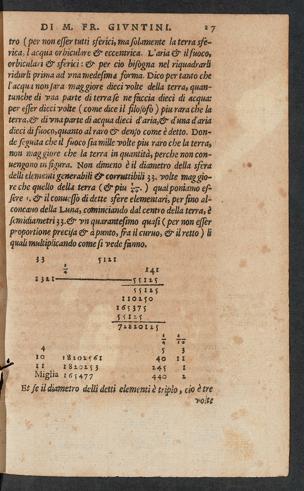 DI M. FR. GIVNTINI. 27
tro (per non esser tutti sferici, ma solamente la terra sfe-
rica. l'acqua orbiculare & eccentrica. L'aria & il fuoco,
orbiculari & sferici: & per cio bisogna nel riquadrarli
ridurli prima ad vna medesima forma. Dico per tanto che
l'acqua non sara maggiore dieci volte della terra, quan-
tunche di vna parte di terra se ne faccia dieci di acqua:
per esser dieci volte (come dice il filosofo) piu rara che la
terra, & di vna parte di acqua dieci d'aria, & d'una d'aria
dieci di fuoco, quanto al raro & denso come è detto. Don-
de seguita che il fuoco sia mille volte piu raro che la terra,
non maggiore che la terra in quantità, perche non con-
uengano in figura. Non dimeno è il diametro della sfera
delli elementi generabili & corruttibili 33. volte maggio-
re che quello della terra (& piu .) qual poniamo es-
sere 1. & il conuesso di dette sfere elementari, per sino al
concauo della Luna, cominciando dal centro della terra, è
semidiametri 33. & vn quarantesimo quasi (per non esser
proportione precisa & a punto, fra il curuo, & il retto) li
quali multiplicando come si vede fanno.
33 5121
141
1321 55125
55125
110250
165375
55125
72820125
4 5 3
10 18202561 40 11
11 1820253 245 1
Miglia 165477 440 2
Et se il diametro delli detti elementi è triplo, cio è tre
volte